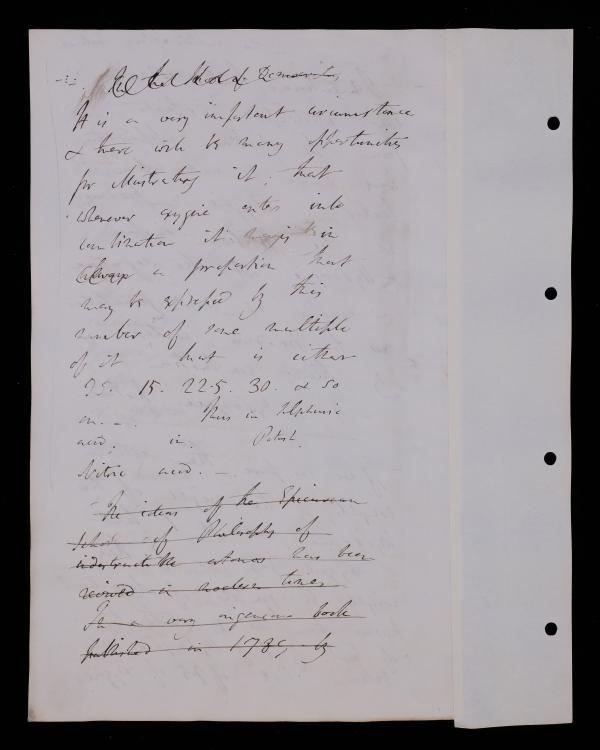 It is a very important circumstance
& there will be many opportunities
for illustrating it; that
whenever oxygene enters into
combination it is in
always a proportion that
may be expressed by this
number or some multiple
of it that is either
7.5. 15. 22.5. 30. & so
on. – Thus in Sulphuric
acid. in. Potash.
Nitric acid. –
The ideas of the Epicurean
School of Philosophy of
indestructible atoms has been
revived in modern times
In a very ingenious book
published in 1789 by